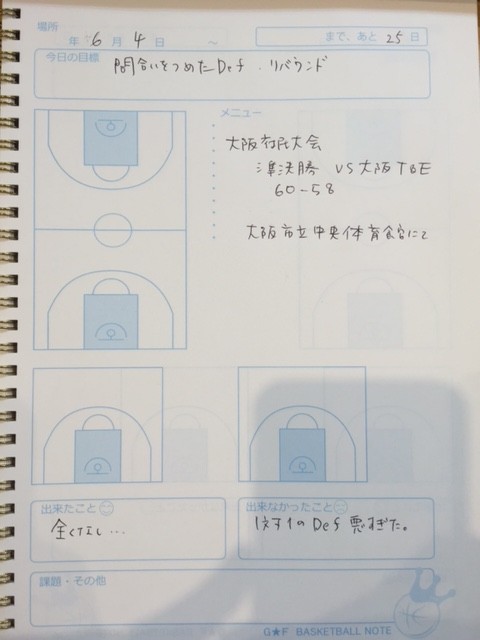 場所
年 6 月 4 日 ~ まで、あと 25 日
今日の目標 間合いをつめたDef . リバウンド
メニュー
大阪市民大会
準決勝 VS大阪TBE
60-58
大阪市立中央体育館にて
出来たこと
全くなし...
出来なかったこと
1対1のDef 悪すぎた。
課題・その他
G★F BASKETBALL NOTE